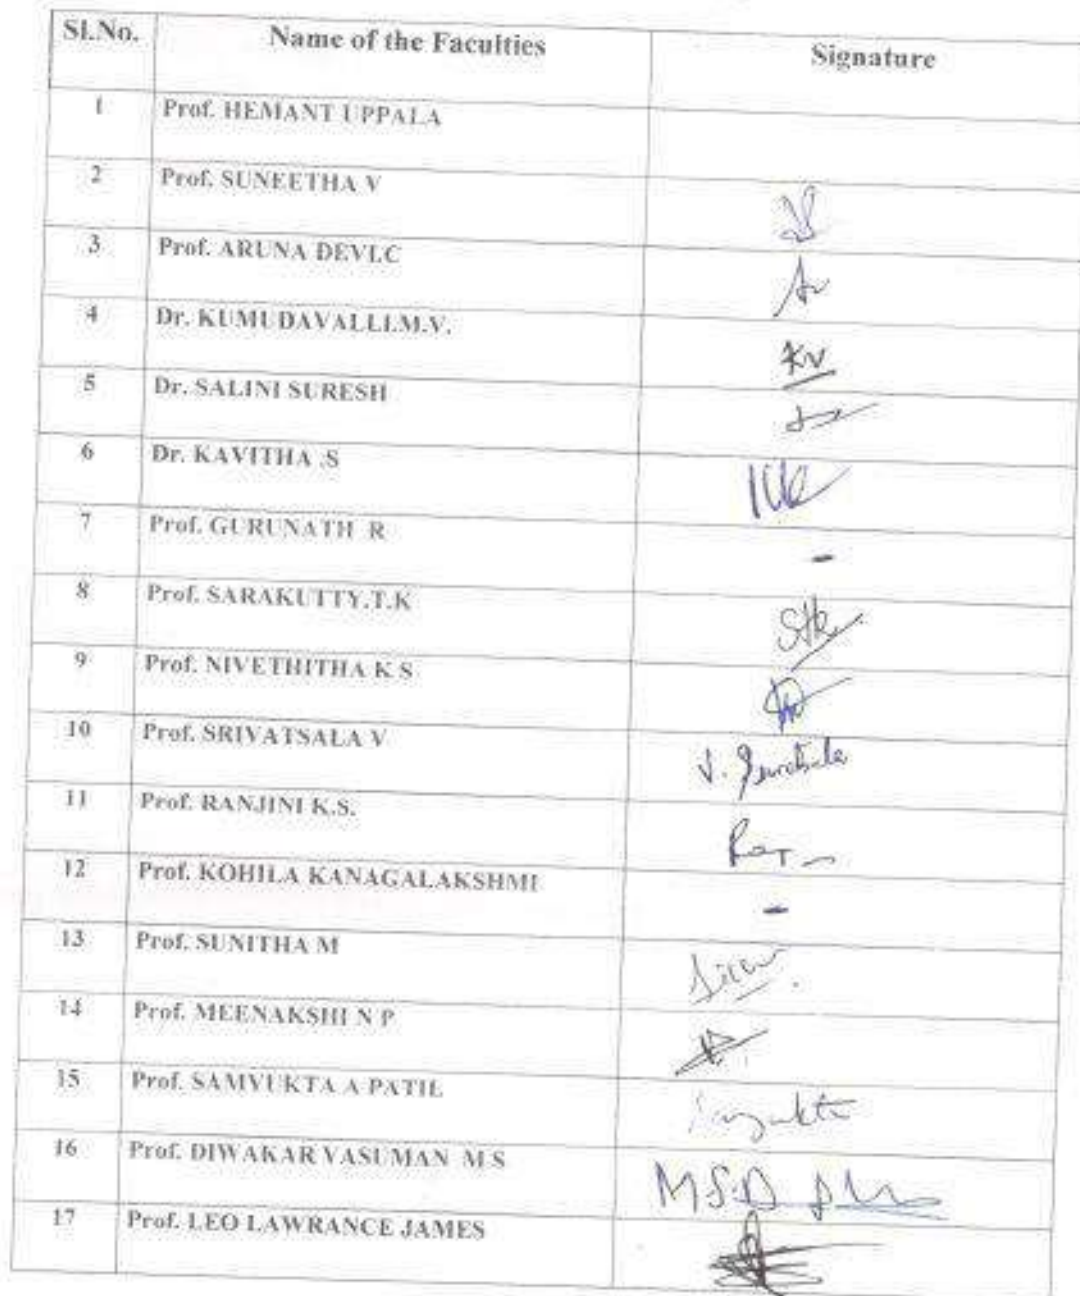 Sl.No. Name of the Faculties Signature
1 Prof. HEMANT UPPALA
2 Prof. SUNEETHA V
3 Prof. ARUNA DEVI.C
4 Dr. KUMUDAVALLI.M.V. KV
5 Dr. SALINI SURESH
6 Dr. KAVITHA .S
7 Prof. GURUNATH R -
8 Prof. SARAKUTTY.T.K
9 Prof. NIVETHITHA K S
10 Prof. SRIVATSALA V
11 Prof. RANJINI K.S.
12 Prof. KOHILA KANAGALAKSHMI -
13 Prof. SUNITHA M
14 Prof. MEENAKSHI N P
15 Prof. SAMYUKTA A PATIL
16 Prof. DIWAKAR VASUMAN M S
17 Prof. LEO LAWRANCE JAMES